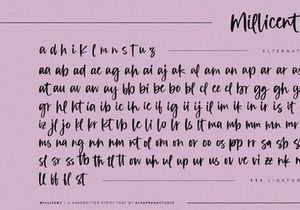 Millicent
a d h i k l m n s t u z
ALTERNAT
aa ab ad ae ag ah ai aj ak al am an ap ar as
at au av aw ay bb bi be bo bl cl ee el er gg gh g
gr hl ht ia ib ic ih ie if ig ii ij il im ik in ir is it
iz jl jo kl kr kt lb le li lo lr ls lt ma mb mm mn mr
ms na ng nn nm nt ol om on or oo os pp rr sa sb
sl sr ss tb th tl tt ou uh ul up ur us ov ve vi zz nk
ll ff fl st
111 LIGATUR
MILLICENT | A HANDWRITTEN SCRIPT FONT BY ALFAPRANASTUDIO